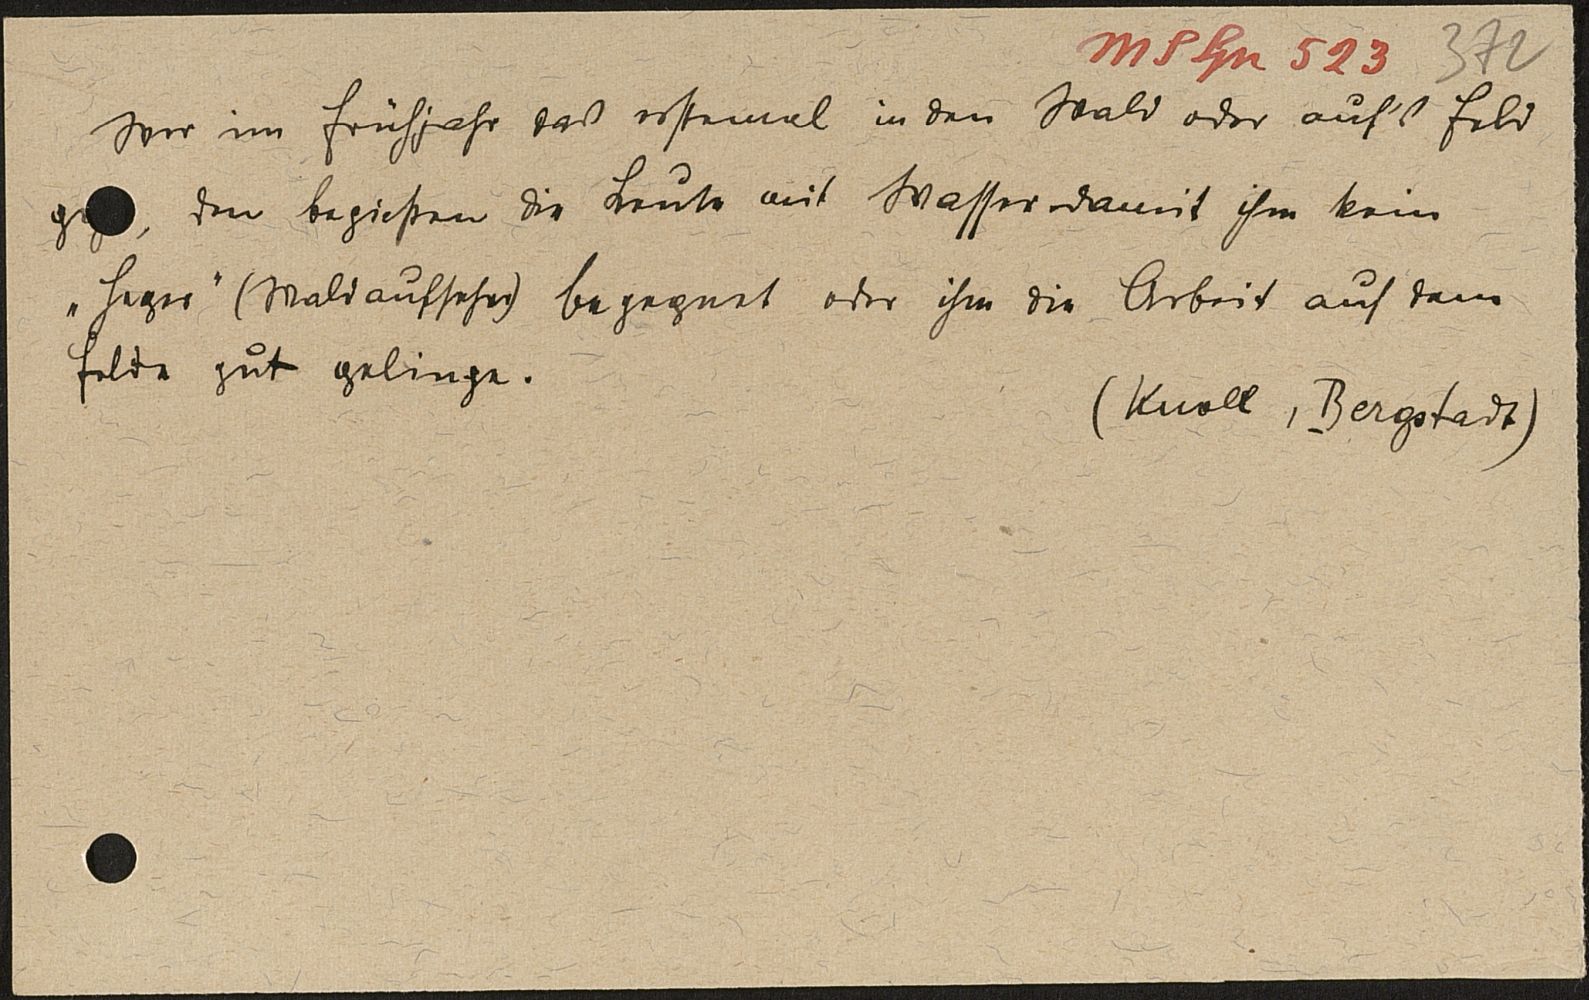 MSGn 523 372
Wer im Frühjahr das erstemal in den Wald oder auf's Feld
geht, den begießen die Leute mit Wasser damit ihm kein
„Heger" (Waldaufseher) begegnet oder ihm die Arbeit auf dem
Felde gut gelinge.
(Knoll, Bergstadt)